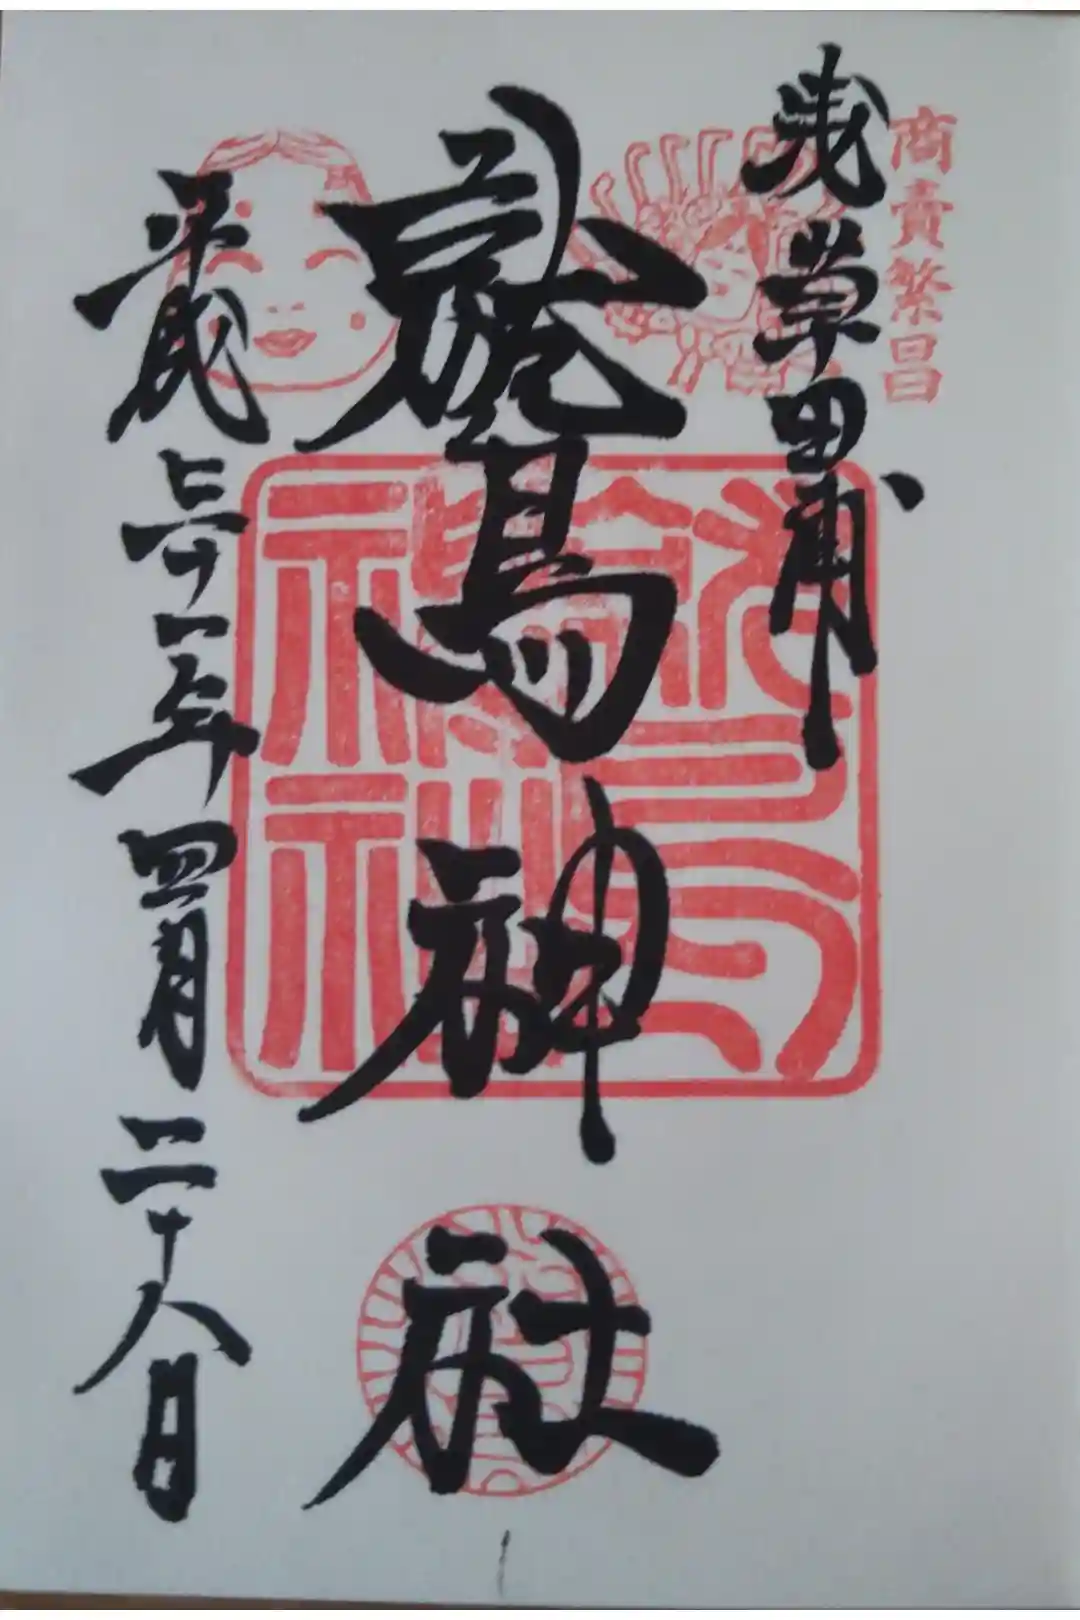 商賣繁昌
浅草田甫
鷲神社
平成三十一年四月二十八日